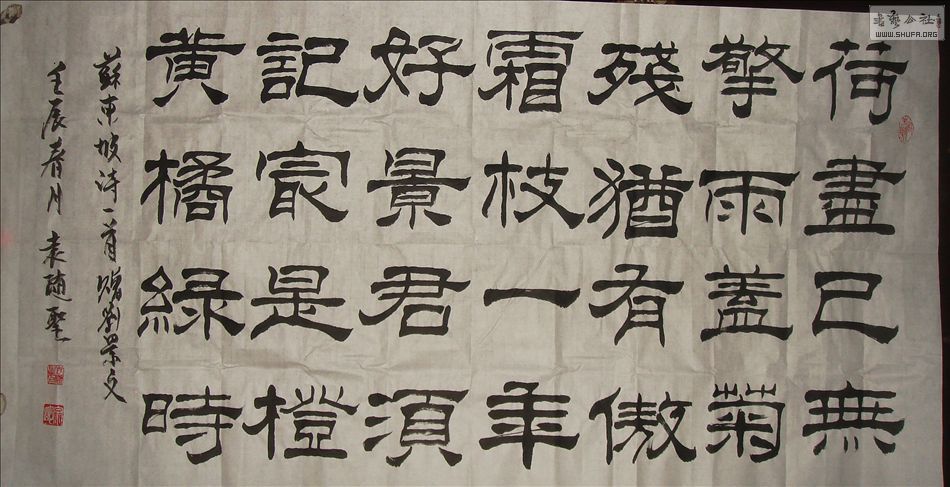 荷盡已無
擎雨蓋菊
殘猶有傲
霜枝一年
好景君須
記冣是橙
黃橘緑時
蘇東坡詩一首贈劉景文
壬辰春月 袁随聖
書藝公社
WWW.SHUFA.ORG